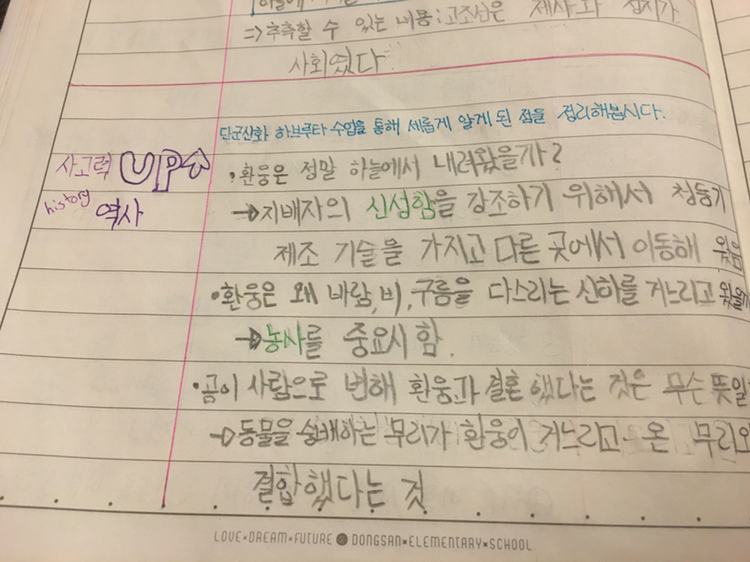 하늘에
⇒추측할 수 있는 내용: 고조선은 제사와 정치가
사회였다.
단군신화 하브루타 수업을 통해 새롭게 알게 된 점을 정리해봅시다.
사고력 UP↑
history 역사
•환웅은 정말 하늘에서 내려왔을까?
→지배자의 신성함을 강조하기 위해서 청동기
제조 기술을 가지고 다른 곳에서 이동해 왔음
•환웅은 왜 바람, 비, 구름을 다스리는 신하를 거느리고 왔을까
→농사를 중요시 함.
•곰이 사람으로 변해 환웅과 결혼했다는 것은 무슨 뜻일
→동물을 숭배하는 무리가 환웅이 거느리고 온 무리와
결합했다는 것
LOVE×DREAM×FUTURE DONGSAN×ELEMENTARY×SCHOOL